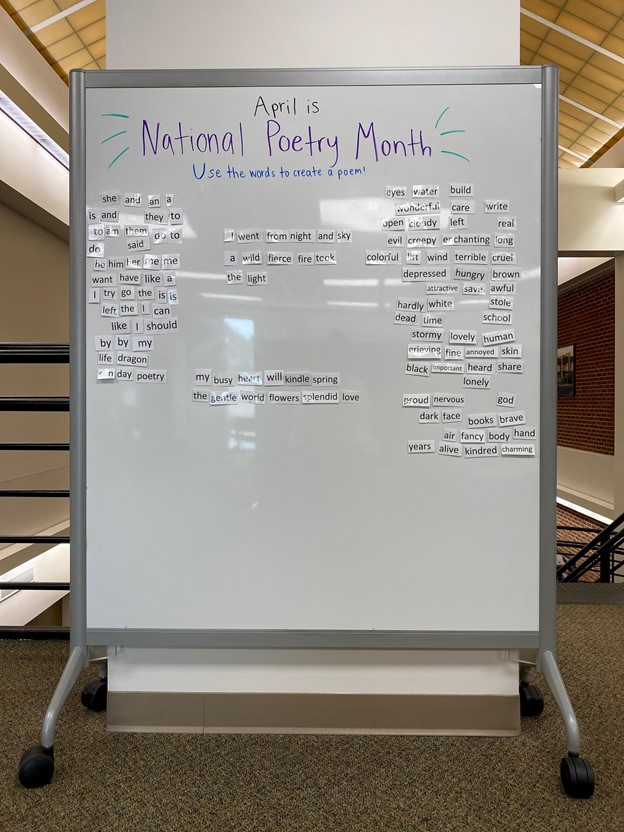 April is
National Poetry Month
Use the words to create a poem!
she and an a
is and they to
to am them do to
do said
he him her me me
want have like a
I try go the is is
left the I can
like I should
by by my
life dragon
day poetry
I went from night and sky
a wild fierce fire took
the light
my busy heart will kindle spring
the gentle world flowers splendid love
eyes water build
wonderful care write
open cloudy left real
evil creepy enchanting long
colorful wind terrible cruel
depressed hungry brown
attractive save awful
hardly white stole
dead time school
stormy lovely human
grieving fine annoyed skin
black important heard share
lonely
proud nervous god
dark face books brave
air fancy body hand
years alive kindred charming